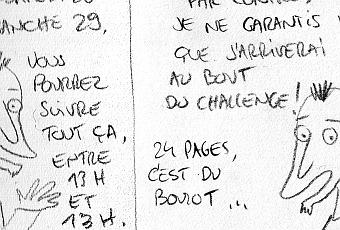 ANCHE 29,
VOUS
POURREZ
SUIVRE
TOUT ÇA,
ENTRE
13 H
ET
13 H.
JE NE GARANTIS
QUE J'ARRIVERAI
AU BOUT
DU CHALLENGE!
24 PAGES,
C'EST DU
BOULOT ...